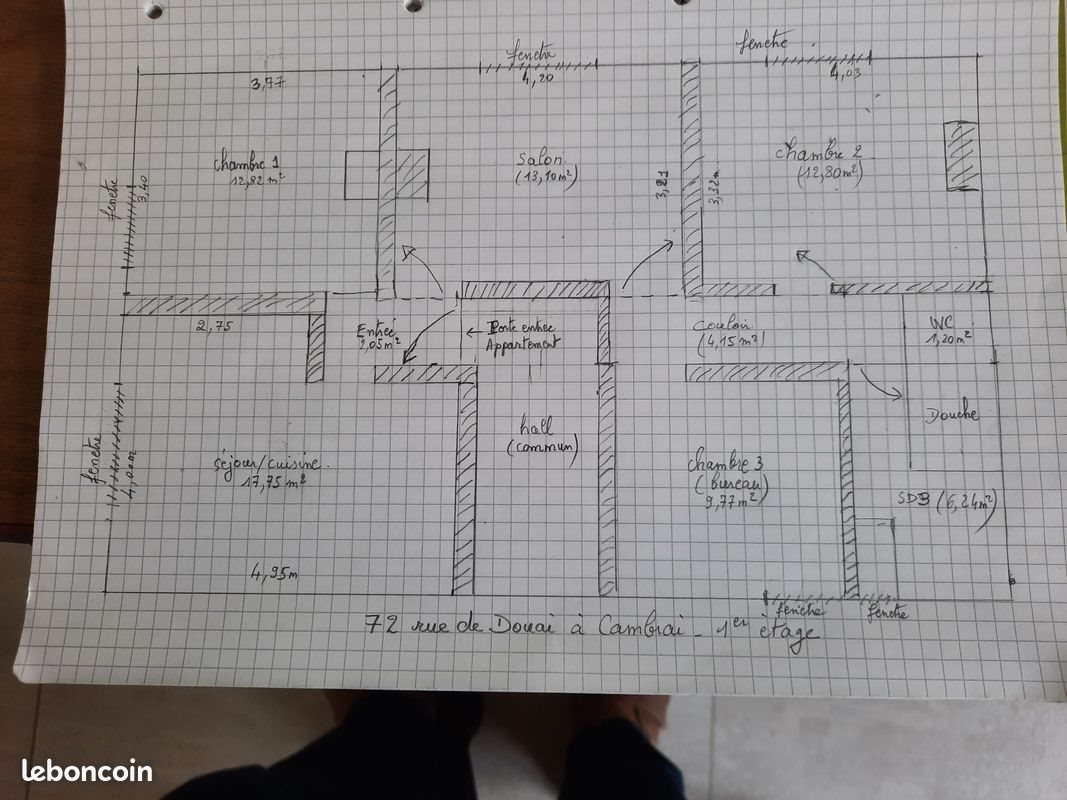 fenetre
fenetre
3,77
4,20
4,03
chambre 1
12,82 m²
Salon
(13,10 m²)
chambre 2
(12,80 m²)
fenetre
3,40
3,21
3,32m
2,75
Entrée
2,05 m²
Porte entrée
Appartement
couloir
(4,15 m²)
WC
1,20 m²
Douche
hall
(commun)
séjour/cuisine
17,75 m²
chambre 3
(bureau)
9,77 m²
SDB (6,24 m²)
fenetre
4,00m
4,95m
fenetre
fenetre
72 rue de Douai à Cambrai - 1er étage
leboncoin